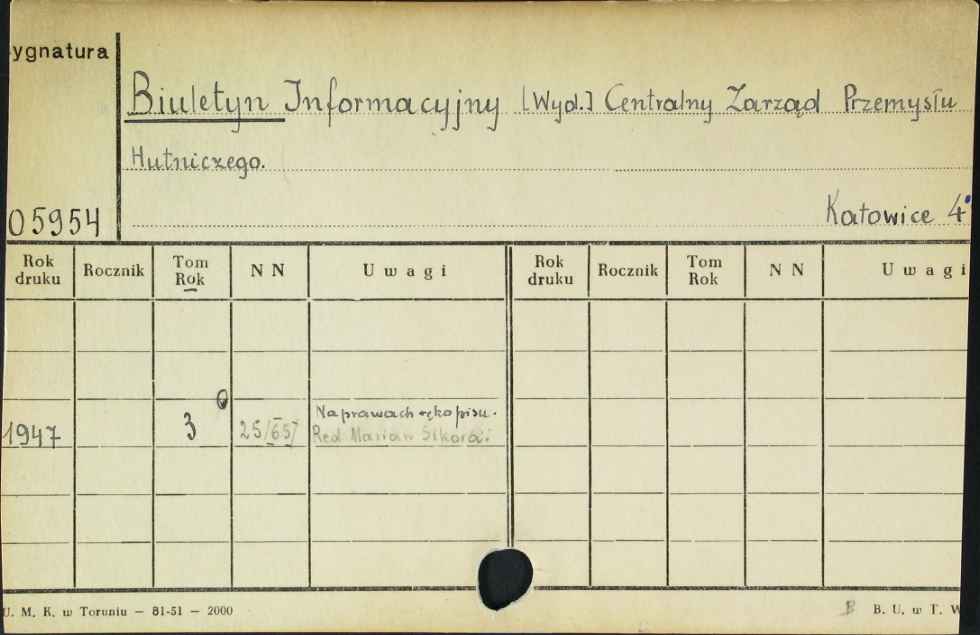 ygnatura
Biuletyn Informacyjny [Wyd.] Centralny Zarząd Przemysłu
Hutniczego.
05954
Katowice 4°
Rok druku Rocznik Tom Rok N N Uwagi Rok druku Rocznik Tom Rok N N Uwagi
Na prawach rękopisu.
1947 3 25/65/ Red Marian Sikora:
U. M. K. w Toruniu — 81-51 — 2000
B B. U. w T. W